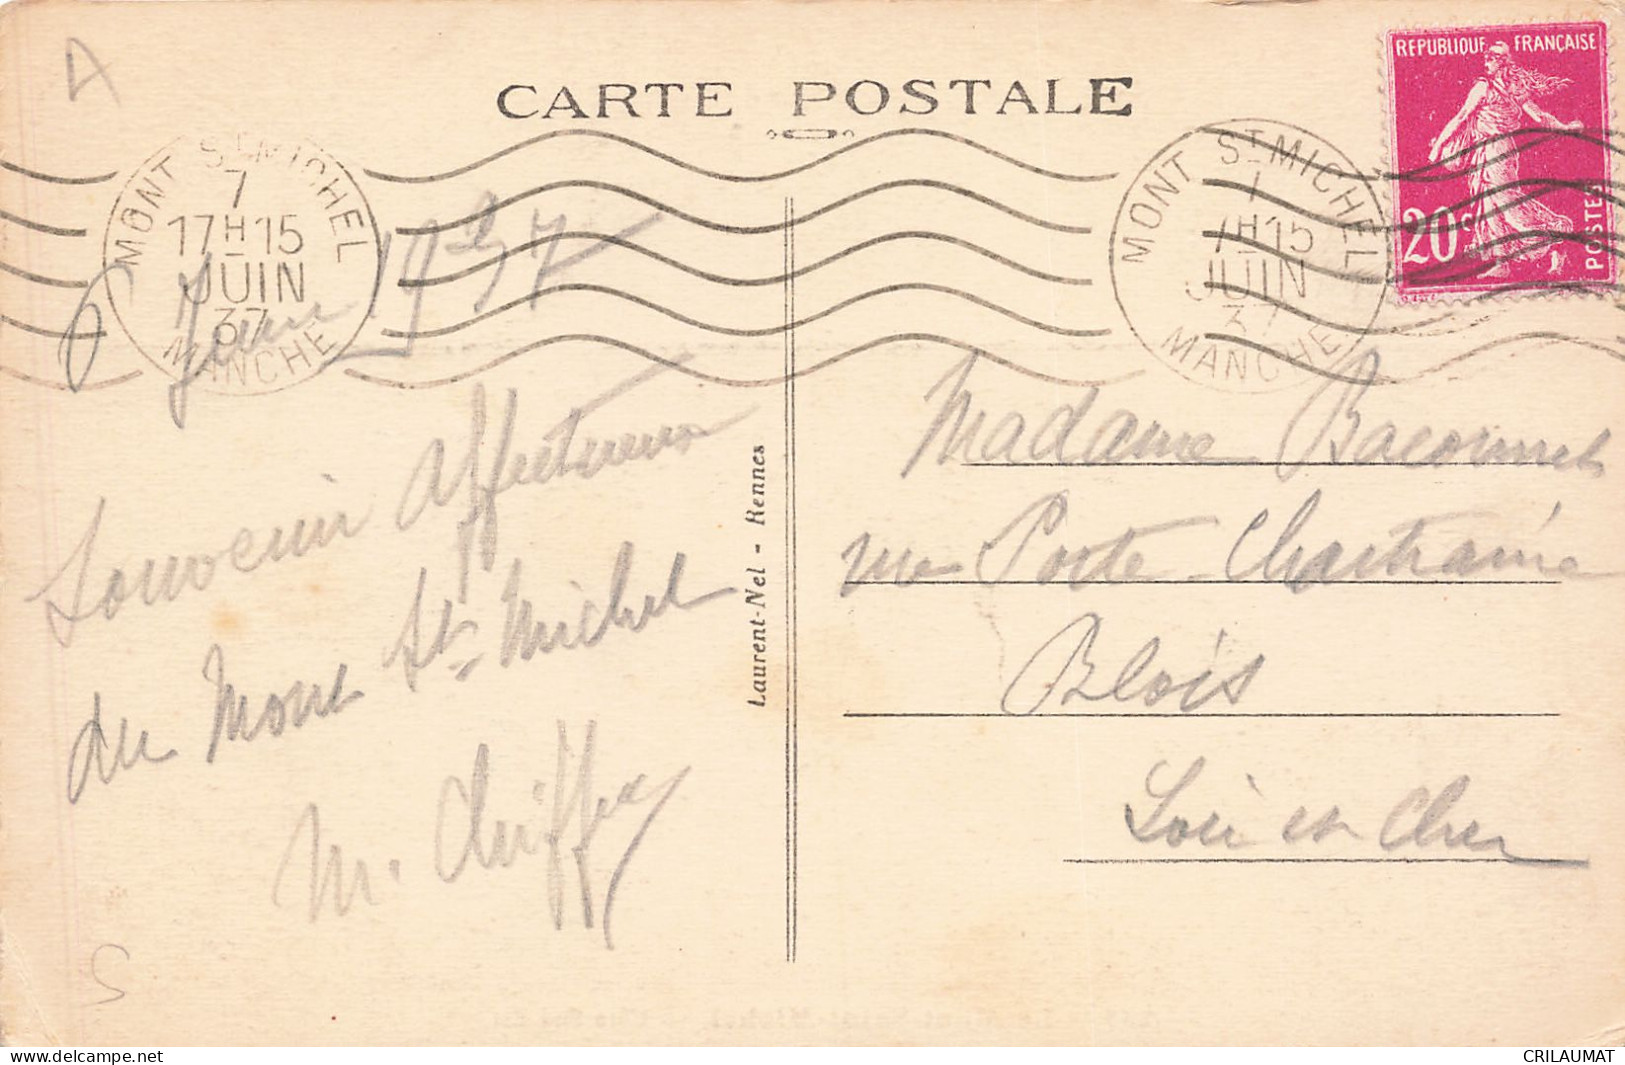 CARTE POSTALE
REPUBLIQUE FRANÇAISE
20c
POSTES
MONT ST MICHEL
7
17H15
JUIN
37
MANCHE
MONT ST MICHEL
7H15
JUIN
37
MANCHE
Juin 1937
Souvenir affectueux
du Mont St Michel
M.
Laurent-Nel - Rennes
Madame
rue Porte Chartraine
Blois
Loir et Cher
CRILAUMAT